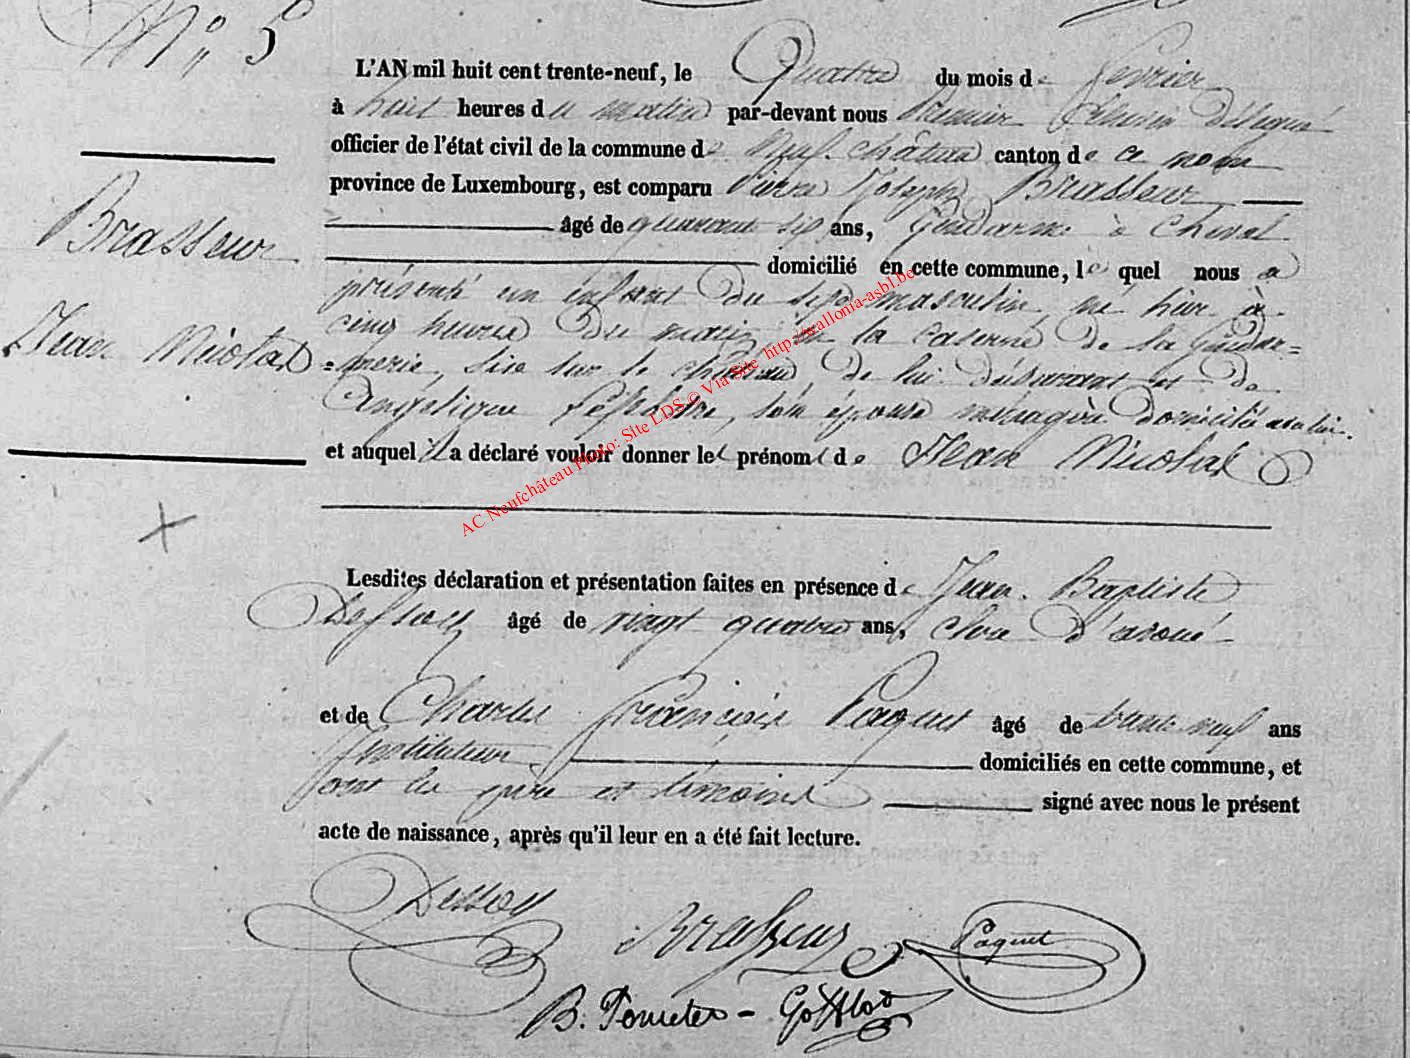 N° 5
L'AN mil huit cent trente-neuf, le Quatre du mois de fevrier
à huit heures du matin par-devant nous Premier Echevin délégué
officier de l'état civil de la commune de Neuf-château canton de ce nom
province de Luxembourg, est comparu Pierre Joseph Brasseur
âgé de quarante six ans, Gendarme à Cheval
domicilié en cette commune, lequel nous a
présenté un enfant du sexe masculin, né hier à
cinq heures du matin en la caserne de la Gendar=
=merie, sise sur le château, de lui déclarant et de
Angélique son épouse ménagère domiciliée
et auquel il a déclaré vouloir donner le prénom de Jean Nicolas
Brasseur
Jean Nicolas
AC Neufchâteau Photo: Site LDS © Via Site http://wallonia-asbl.be
Lesdites déclaration et présentation faites en présence de Jean-Baptiste
Dessoy âgé de vingt quatre ans, clerc d'avoué
et de Charles François Paquet âgé de trente neuf ans
Instituteur domiciliés en cette commune, et
ont les père et témoins signé avec nous le présent
acte de naissance, après qu'il leur en a été fait lecture.
Dessoy
Brasseur
Paquet
B.